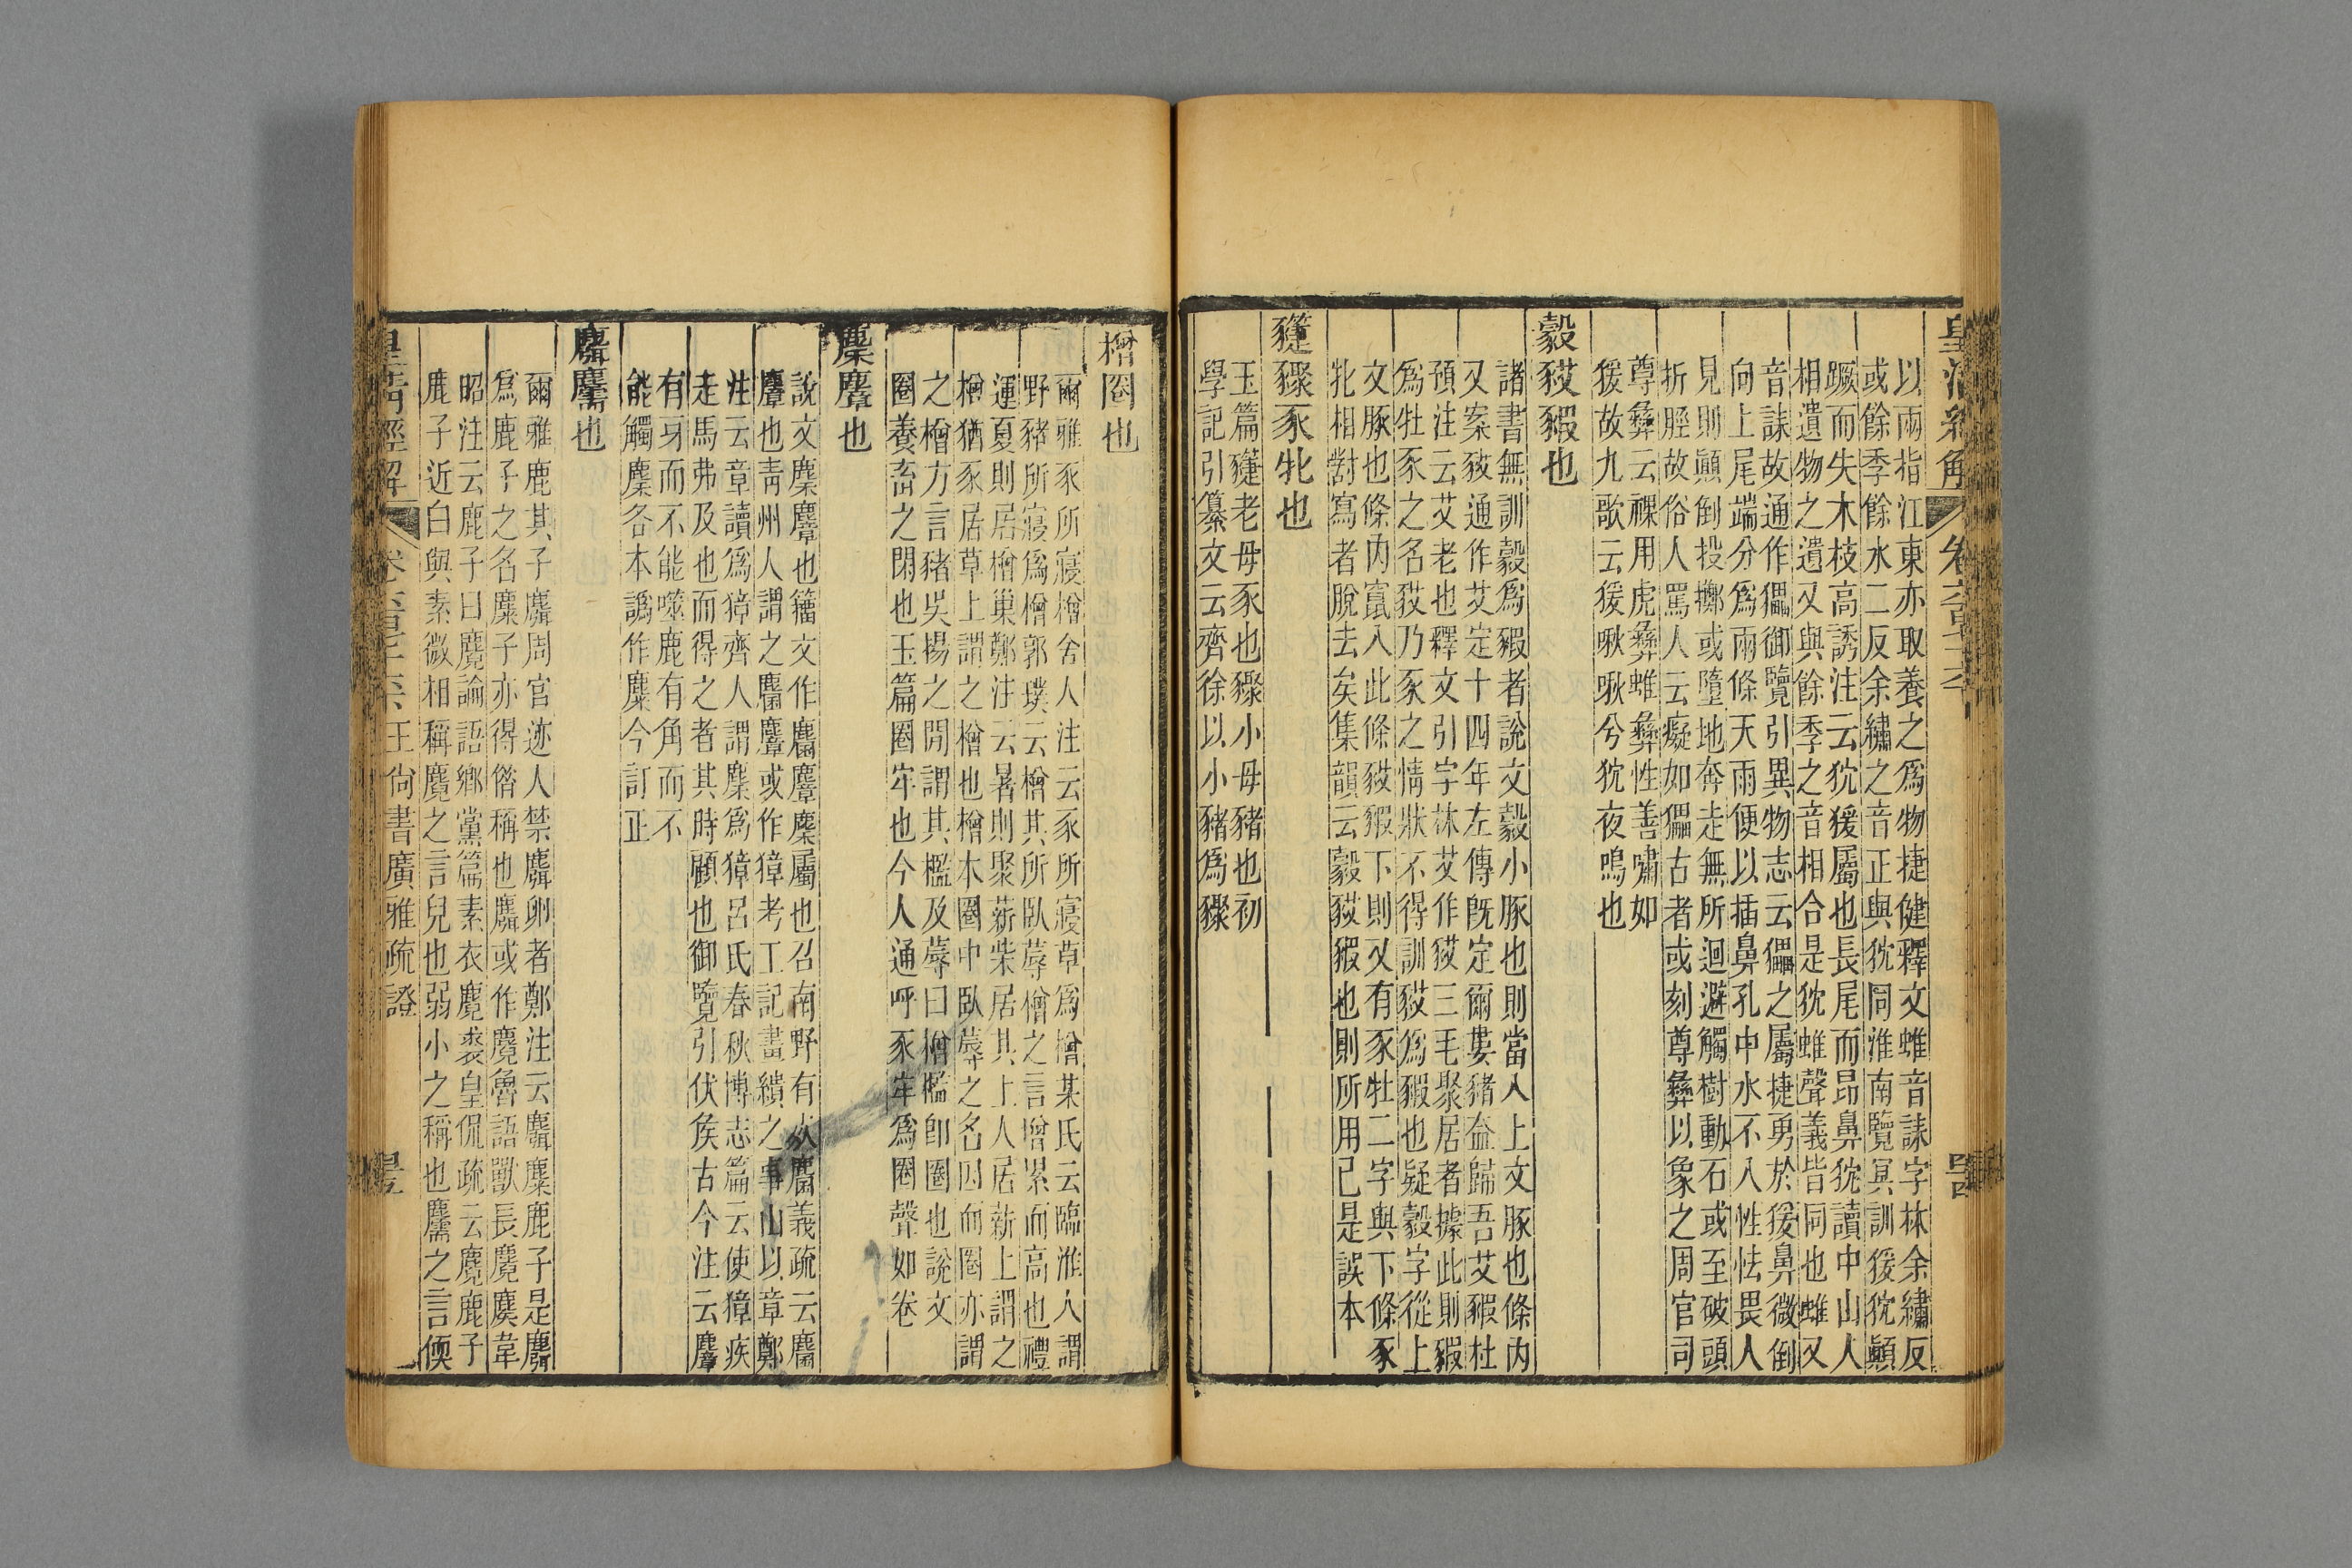 皇清經解 卷六百六十六
以兩指江東亦取養之爲物捷健釋文蜼音誄字林余繡反
或餘季餘水二反余繡之音正與狖同淮南覽冥訓猨狖顚
蹶而失木枝高誘注云狖猨屬也長尾而昂鼻狖讀中山人
相遺物之遺又與餘季之音相合是狖蜼聲義皆同也蜼又
音誄故通作㹎御覽引異物志云㹎之屬捷勇於猨鼻微倒
向上尾端分爲兩條天雨便以插鼻孔中水不入性怯畏人
見則顚倒投擲或墮地奔走無所迴避觸樹動石或至破頭
折脛故俗人罵人云癡如㹎古者或刻尊彝以象之周官司
尊彝云祼用虎彝蜼彝性善嘯如
猨故九歌云猨啾啾兮狖夜鳴也
豰䝅豭也
諸書無訓豰爲豭者說文豰小豚也則當入上文豚也條內
又案䝅通作艾定十四年左傳旣定爾婁豬盍歸吾艾豭杜
預注云艾老也釋文引字林艾作䝅三毛聚居者據此則豭
爲牡豕之名䝅乃豕之情狀不得訓䝅爲豭也疑豰字從上
文豚也條內竄入此條䝅豭下則又有豕牡二字與下條豕
牝相對寫者脫去矣集韻云豰䝅豭也則所用已是誤本
䝋豵豕牝也
玉篇䝋老母豕也豵小母豬也初
學記引纂文云齊徐以小豬爲豵
橧圈也
爾雅豕所寢橧舍人注云豕所寢草爲橧某氏云臨淮人謂
野豬所寢爲橧郭璞云橧其所臥蓐橧之言增累而高也禮
運夏則居橧巢鄭注云暑則聚薪柴居其上人居薪上謂之
橧猶豕居草上謂之橧也橧本圈中臥蓐之名因而圈亦謂
之橧方言豬吳揚之閒謂其檻及蓐曰橧檻卽圈也說文
圈養畜之閑也玉篇圈牢也今人通呼豕牢爲圈聲如卷
麇麞也
說文麇麞也籒文作麕麞麇屬也召南野有死麕義疏云麕
麞也靑州人謂之麕麞或作獐考工記畫繢之事山以章鄭
注云章讀爲獐齊人謂麇爲獐呂氏春秋博志篇云使獐疾
走馬弗及也而得之者其時顧也御覽引伏侯古今注云麞
有牙而不能噬鹿有角而不
能觸麇各本譌作麋今訂正
麛麡也
爾雅鹿其子麛周官迹人禁麛卵者鄭注云麛麋鹿子是麛
爲鹿子之名麋子亦得偕稱也麛或作麑魯語獸長麑䴠韋
昭注云鹿子曰麑論語鄉黨篇素衣麑裘皇侃疏云麑鹿子
鹿子近白與素微相稱麑之言兒也弱小之稱也麡之言偄
皇清經解 卷六百六十六 王尙書廣雅疏證